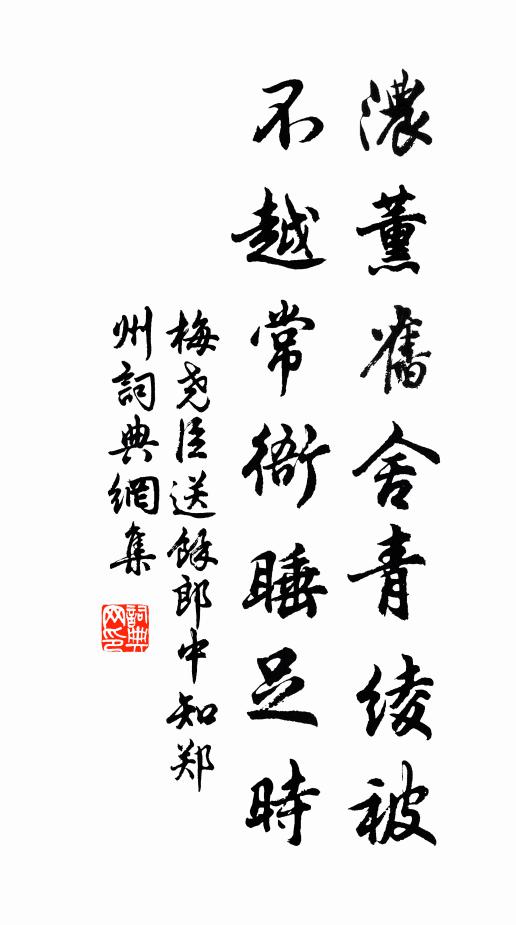 濃薰舊舍青綾被
不越常衙睡足時
梅尧臣送餘郎中知郑
州詞典網集
詞典
网印